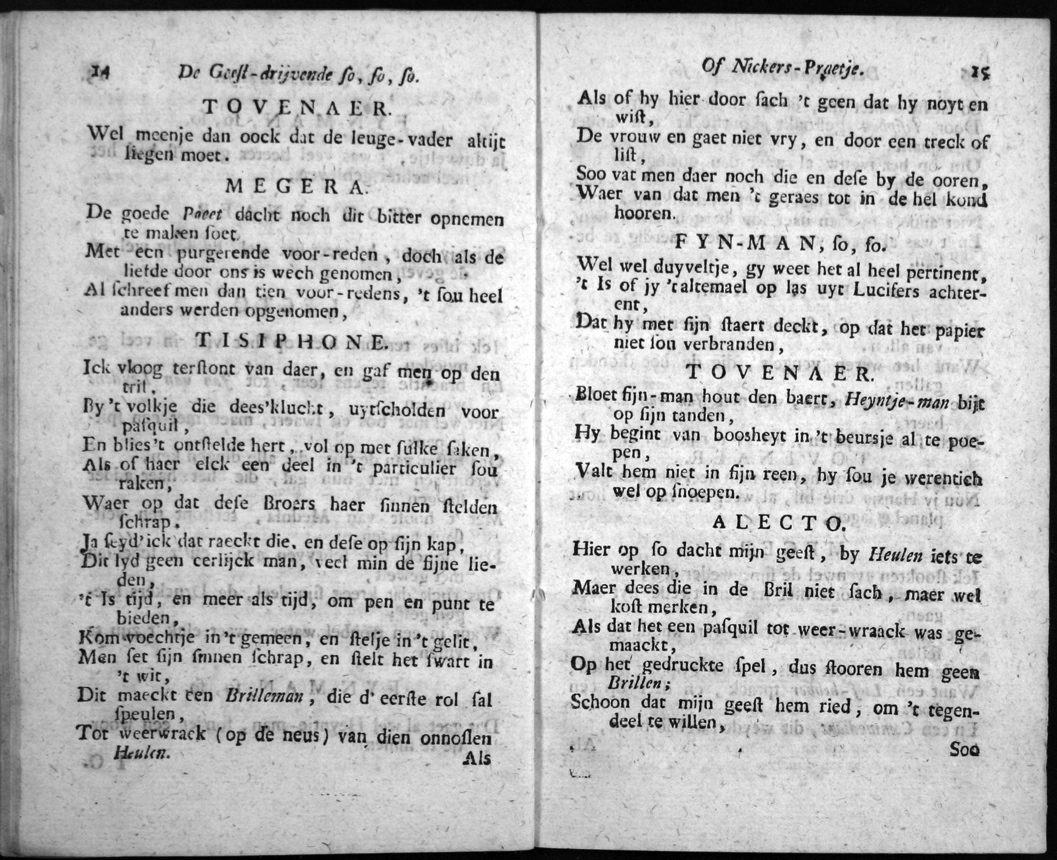 14 De Geest-drijvende ſo, ſo, ſo.
TOVENAER.
Wel meenje dan oock dat de leuge-vader altijt
liegen moet.
MEGERA.
De goede Poeet dacht noch dit bitter opnemen
te maken ſoet,
Met een purgerende voor-reden, doch als de
liefde door ons is wech genomen,
Al ſchreef men dan tien voor-redens, 't ſou heel
anders werden opgenomen,
TISIPHONE.
Ick vloog terſtont van daer, en gaf men op den
tril,
By 't volkje die dees'klucht, uytſcholden voor
paſquil,
En blies't ontſtelde hert, vol op met ſulke ſaken,
Als of haer elck een deel in 't particulier ſou
raken,
Waer op dat deſe Broers haer ſinnen ſtelden
ſchrap,
Ja ſeyd'ick dat raeckt die, en deſe op ſijn kap,
Dit lyd geen eerlijck man, veel min de fijne lie-
den,
't Is tijd, en meer als tijd, om pen en punt te
bieden,
Kom voechtje in't gemeen, en ſtelje in 't gelit,
Men ſet ſijn ſinnen ſchrap, en ſtelt het ſwart in
't wit,
Dit maeckt een Brilleman, die d' eerſte rol ſal
ſpeulen,
Tot weerwrack (op de neus) van dien onnoſlen
Heulen.
Als
Of Nickers-Praetje. 15
Als of hy hier door ſach 't geen dat hy noyt en
wiſt,
De vrouw en gaet niet vry, en door een treck of
liſt,
Soo vat men daer noch die en deſe by de ooren,
Waer van dat men 't geraes tot in de hel kond
hooren.
FYN-MAN, ſo, ſo.
Wel wel duyveltje, gy weet het al heel pertinent,
't Is of jy 't altemael op las uyt Lucifers achter-
ent,
Dat hy met ſijn ſtaert deckt, op dat het papier
niet ſou verbranden,
TOVENAER.
Bloet fijn-man hout den baert, Heyntje-man bijt
op ſijn tanden,
Hy begint van boosheyt in 't beursje al te poe-
pen,
Valt hem niet in ſijn reen, hy ſou je werentich
wel op ſnoepen.
ALECTO.
Hier op ſo dacht mijn geeſt, by Heulen iets te
werken,
Maer dees die in de Bril niet ſach, maer wel
koſt merken,
Als dat het een paſquil tot weer-wraack was ge-
maackt,
Op het gedruckte ſpel, dus ſtooren hem geen
Brillen;
Schoon dat mijn geeſt hem ried, om 't tegen-
deel te willen,
Soo